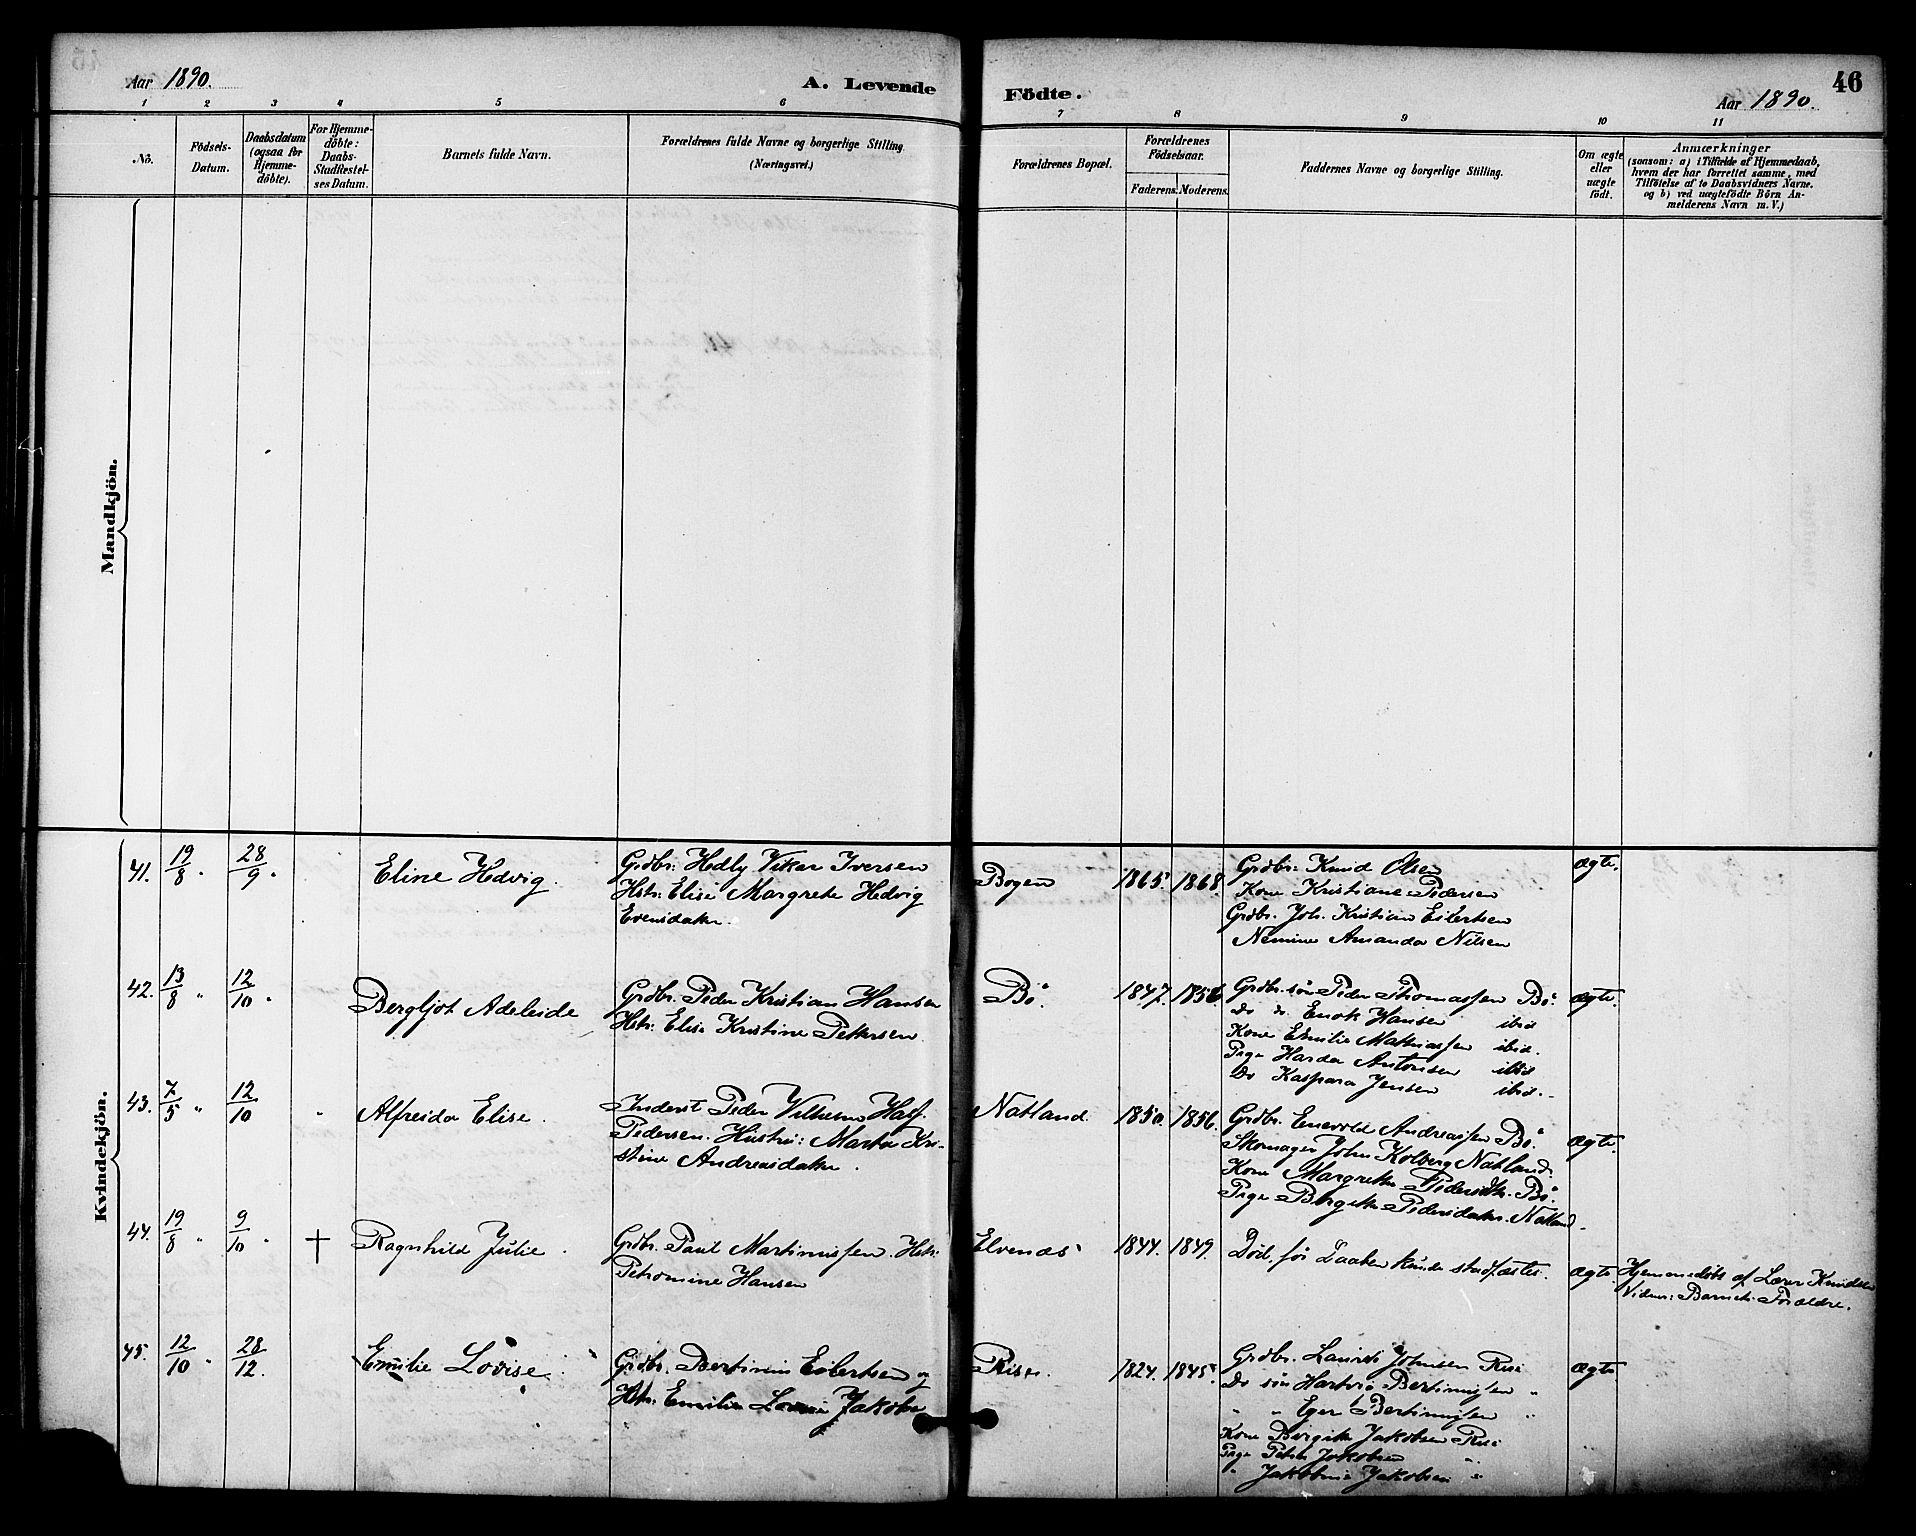 Aar 1890.
A. Levende
Födte.
46
Aar 1890.
1 2 3 4 5 6 7 8 9 10 11
No.
Födsels-
Datum.
Daabsdatum
(ogsaa for
Hjemme-
döbte).
For Hjemme-
döbte:
Daabs-
Stadfæstel-
ses Datum.
Barnets fulde Navn.
Forældrenes fulde Navne og borgerlige Stilling.
(Næringsvei.)
Forældrenes Bopæl.
Forældrenes
Födselsaar.
Faderens. Moderens.
Faddernes Navne og borgerlige Stilling.
Om ægte
eller
uægte
födt.
Anmærkninger
(saasom: a) i Tilfælde af Hjemmedaab,
hvem der har forrettet samme, med
Tilföielse af to Daabsvidners Navne.
og b) ved uægtefödte Börn An-
melderens Navn m. V.)
Mandkjön.
Kvindekjön.
41. 19/8. 28/9.
Eline Hedvig.
Grdbr: Hedly Vikar Iversen
Hstr: Elise Margrete Hedvig
Evensdatter.
Bogen
1865. 1868.
Grdbr: Knud Olsen
Kone Kristiane Pedersen
Grdbr. Joh. Kristian Eilertsen
Amanda Nilsen
ægte.
42. 13/8 " 12/10.
Bergljot Adeleide
Grdbr. Peder Kristian Hansen
Hstr: Elise Kristine Pettersen.
Bö.
1847. 1856.
Grdbr. sön Peder Thomassen Bö.
Do Enok Hansen ibid
Kone Emilie Mathiassen ibid.
Pige Harda Antonsen ibid
Do Kaspara Jensen ibid.
ægte.
43. 7/5 " 12/10 "
Alfreida Elise.
Inderst Peder Vilhelm Half.
Pedersen. Hustru: Marta Kri-
stine Andreasdatter.
Natland.
1850. 1856.
Grdbr. Enevold Andreassen Bö.
Skomager John Kolberg Natland.
Kone Margrethe Pedersdtr. Bö.
Pige Birgitte Pedersdatter. Natland.
ægte.
44. 19/8 " 9/10 " †
Ragnhild Julie.
Grdbr. Paul Martinussen. Hstr:
Petromine Hansen
Elvenæs
1844. 1849.
Död før Daaben kunde stadfæstes.
ægte.
Hjemmedöbt af Lærer Knudsen
Vidner: Barnets Forældre.
45. 12/10 " 28/12.
Emilie Lovise.
Grdbr. Bertinius Eilertsen og
Hstr: Emilie Lovise Jakobsen
Rise.
1824. 1845.
Grdbr. Laurits Johnsen Rise
Do sön Hartvig Bertinussen "
" " Eger Bertinussen "
Kone Birgitte Jakobsen Rise
Pige Petra Jakobsen "
" Jakobine Jakobsen "
ægte